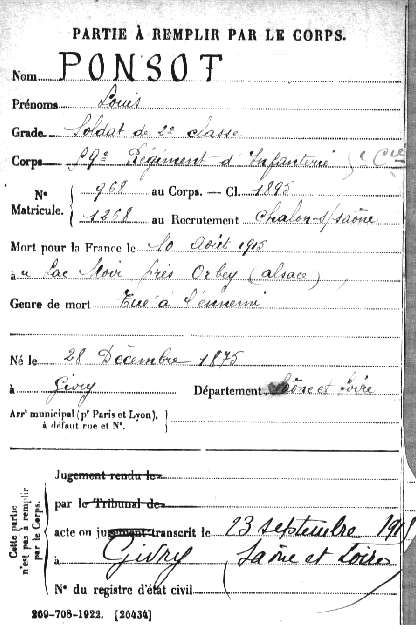 PARTIE À REMPLIR PAR LE CORPS.
Nom PONSOT
Prénoms Louis
Grade Soldat de 2e classe
Corps Régiment d'Infanterie
No Matricule. 968 au Corps. — Cl. 1895
1268 au Recrutement Chalon-s/Saône
Mort pour la France le 10 Août 1915
à Lac Noir près Orbey (Alsace)
Genre de mort Tué à l'ennemi
Né le 28 Décembre 1875
à Givry Département Saône et Loire
Arrt municipal (pr Paris et Lyon),
à défaut rue et No.
Cette partie n'est pas à remplir par le Corps.
Jugement rendu le
par le Tribunal de
acte ou jugement transcrit le 23 septembre
à Givry (Saône et Loire
No du registre d'état civil
269-708-1922. [26434]